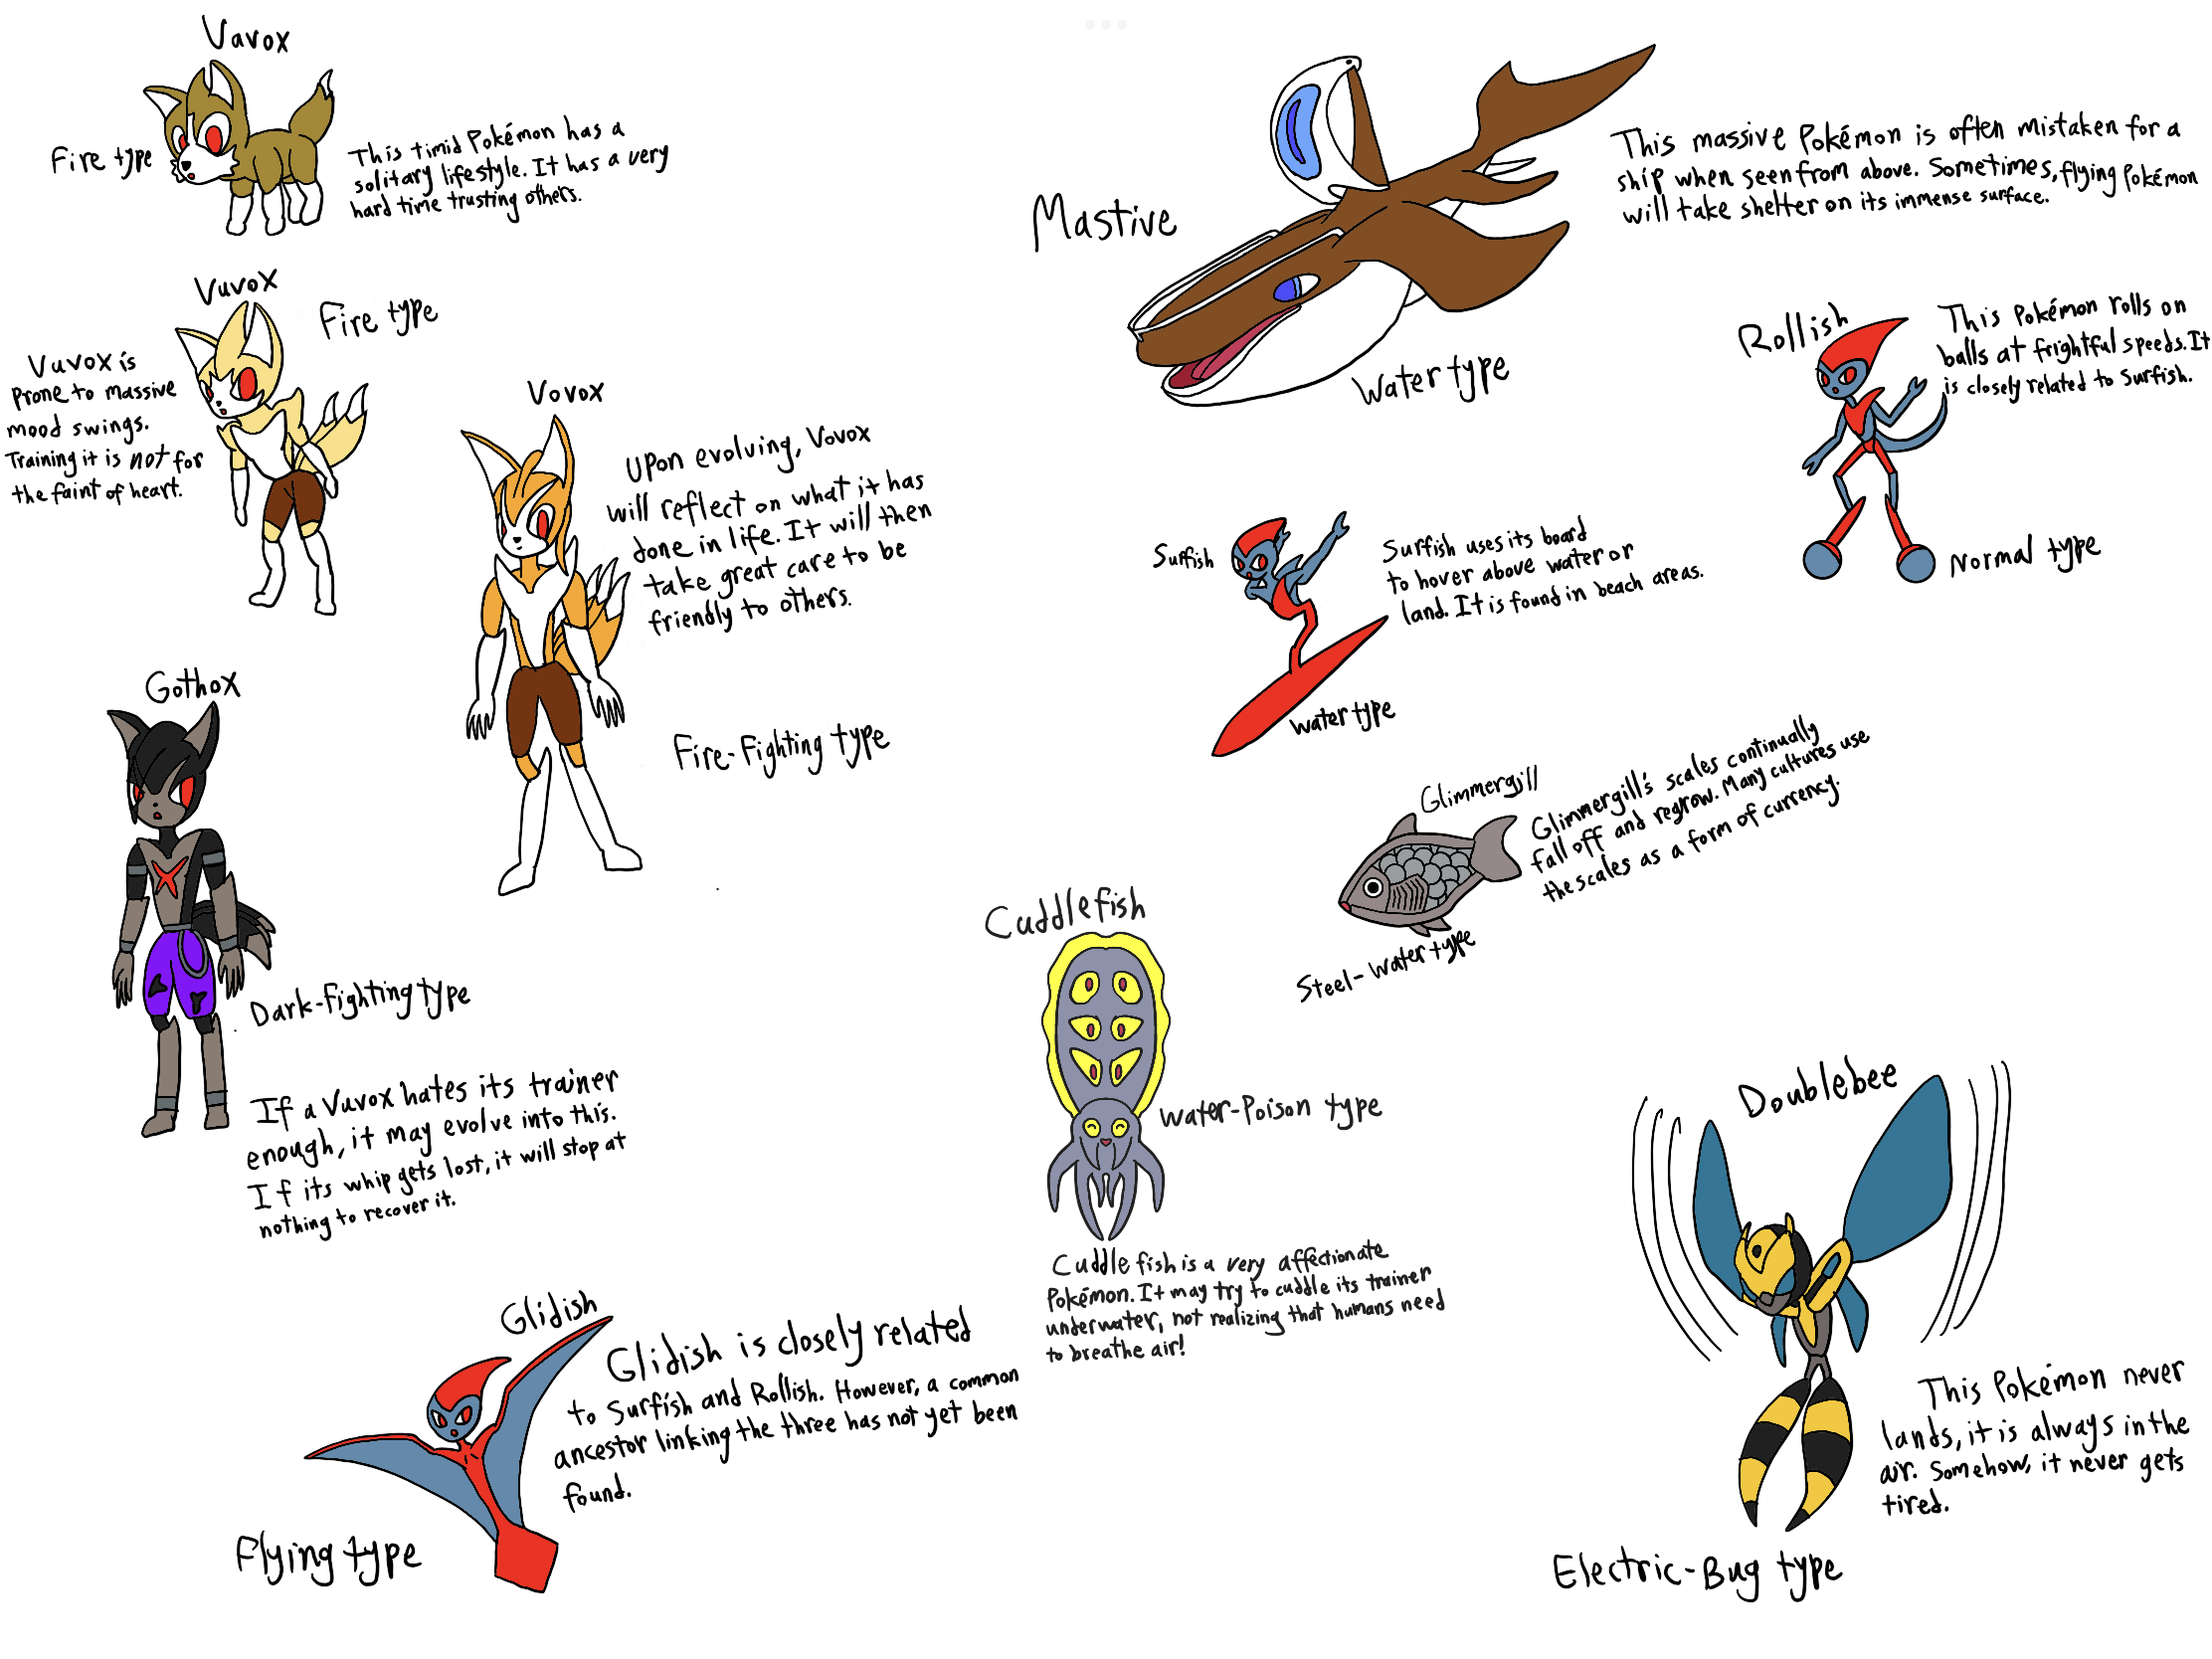 Vavox
Fire type
This timid Pokémon has a
solitary lifestyle. It has a very
hard time trusting others.
Vuvox
Fire type
Vuvox is
prone to massive
mood swings.
Training it is not for
the faint of heart.
Vovox
Upon evolving, Vovox
will reflect on what it has
done in life. It will then
take great care to be
friendly to others.
Fire-Fighting type
Gothox
Dark-Fighting type
If a Vuvox hates its trainer
enough, it may evolve into this.
If its whip gets lost, it will stop at
nothing to recover it.
Glidish
Glidish is closely related
to Surfish and Rollish. However, a common
ancestor linking the three has not yet been
found.
Flying type
Mastive
This massive Pokémon is often mistaken for a
ship when seen from above. Sometimes, flying Pokémon
will take shelter on its immense surface.
Water type
Rollish
This Pokémon rolls on
balls at frightful speeds. It
is closely related to Surfish.
Normal type
Surfish
Surfish uses its board
to hover above water or
land. It is found in beach areas.
Water type
Glimmergill
Glimmergill's scales continually
fall off and regrow. Many cultures use
the scales as a form of currency.
Steel-Water type
Cuddlefish
Water-Poison type
Cuddlefish is a very affectionate
Pokémon. It may try to cuddle its trainer
underwater, not realizing that humans need
to breathe air!
Doublebee
This Pokémon never
lands, it is always in the
air. Somehow, it never gets
tired.
Electric-Bug type